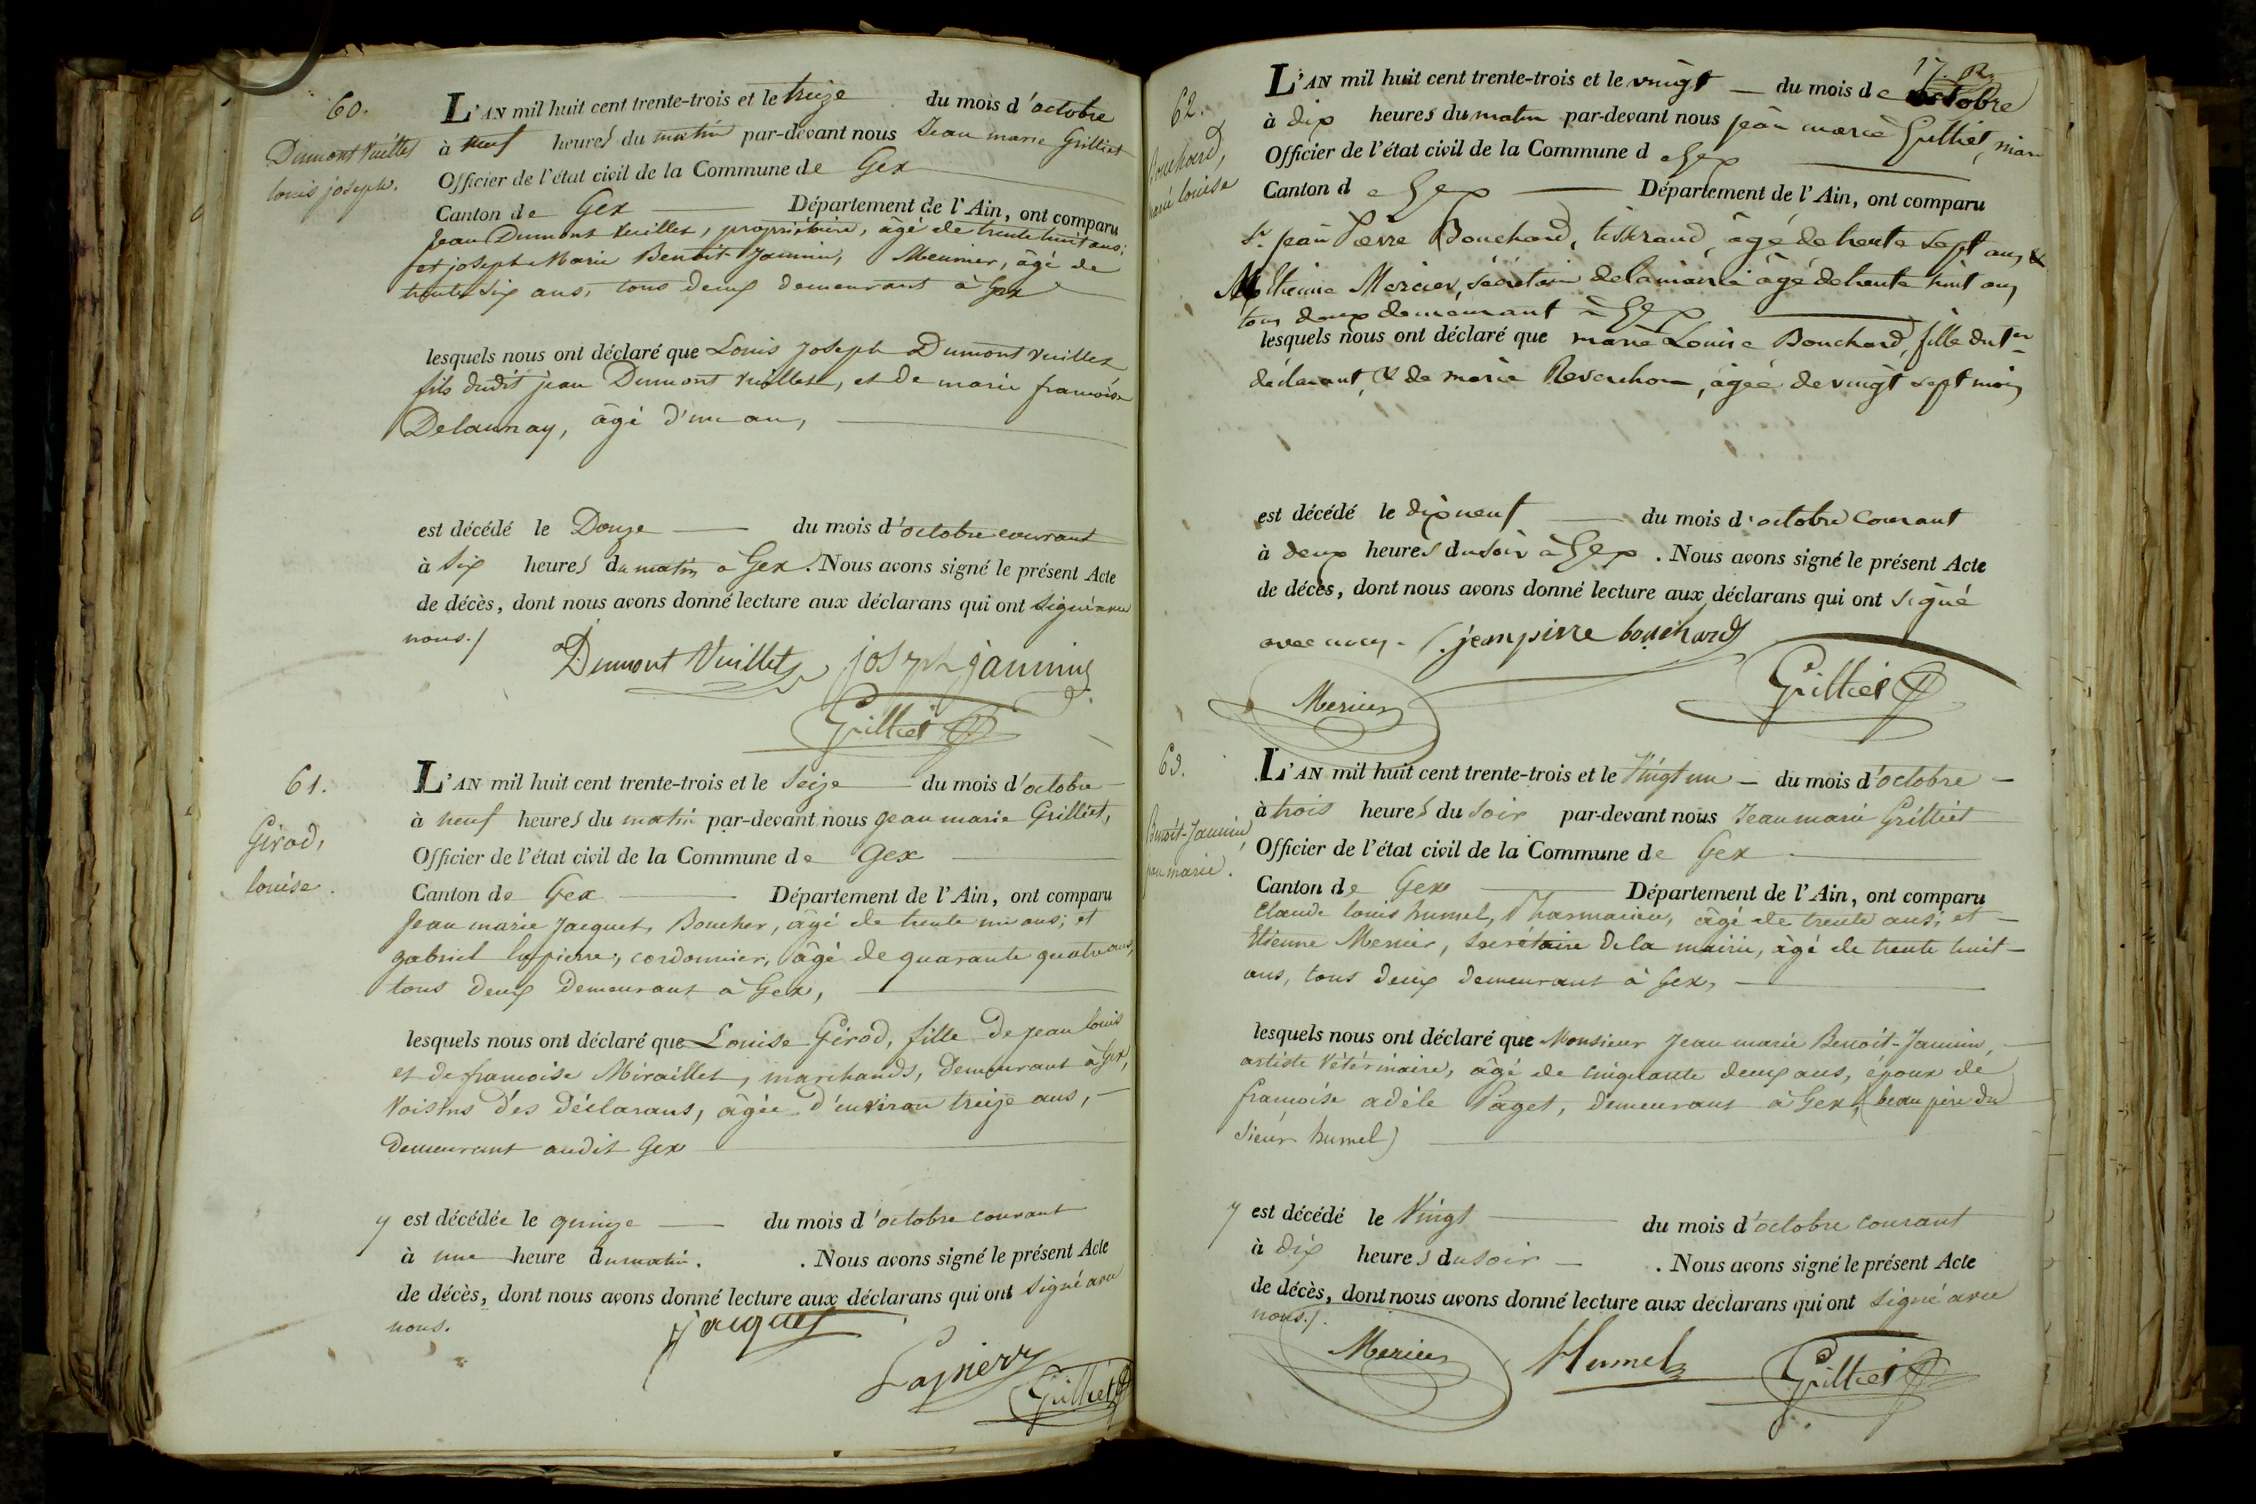 60.
Dumont Vuillet
louis joseph.
L'AN mil huit cent trente-trois et le treize du mois d'octobre
à neuf heures du matin par-devant nous Jean marie Grilliet
Officier de l'état civil de la Commune de Gex
Canton de Gex Département de l'Ain, ont comparu
Jean Dumont Vuillet, propriétaire, âgé de trente huit ans;
et joseph Marie Benoit-Jannin, Meunier, âgé de
trente six ans, tous deux demeurant à Gex
lesquels nous ont déclaré que Louis Joseph Dumont Vuillet
fils dudit jean Dumont Vuillet, et de marie francoise
Delaunay, âgé d'un an,
est décédé le Douze du mois d'octobre courant
à six heures du matin à Gex. Nous avons signé le présent Acte
de décès, dont nous avons donné lecture aux déclarans qui ont signé avec
nous./
Dumont Vuillet joseph jannin
Grilliet
61.
Girod,
louise.
L'AN mil huit cent trente-trois et le seize du mois d'octobre
à neuf heures du matin par-devant nous Jean marie Grilliet,
Officier de l'état civil de la Commune de Gex
Canton de Gex Département de l'Ain, ont comparu
Jean marie Jacquet, Boucher, âgé de trente un ans; et
gabriel lapierre, cordonnier, âgé de quarante quatre ans,
tous deux demeurant à Gex,
lesquels nous ont déclaré que Louise Girod, fille de jean louis
et de francoise Miraillet, marchands, demeurant à Gex,
voisins des déclarans, âgée d'environ treize ans,
demeurant audit Gex
y est décédée le quinze du mois d'octobre courant
à une heure du matin. . Nous avons signé le présent Acte
de décès, dont nous avons donné lecture aux déclarans qui ont signé avec
nous.
Jacquet
Lapierre
Grilliet
17.
62.
Bouchard,
marie louise
L'AN mil huit cent trente-trois et le vingt du mois de octobre
à dix heures du matin par-devant nous jean marie Grilliet, maire
Officier de l'état civil de la Commune de Gex
Canton de Gex Département de l'Ain, ont comparu
Sr jean Pierre Bouchard, tisserand, âgé de trente sept ans &
Etienne Mercier, sécrétaire de la mairie âgé de trente huit ans
tous deux demeurant à Gex
lesquels nous ont déclaré que marie Louise Bouchard, fille du 1er
déclarant, & de marie Reverchon, âgée de vingt sept mois
est décédé le dix neuf du mois d'octobre courant
à deux heures du soir à Gex . Nous avons signé le présent Acte
de décès, dont nous avons donné lecture aux déclarans qui ont signé
avec nous. jean pierre bouchard
Mercier Grilliet
63.
Benoit-Jannin,
jean marie.
L'AN mil huit cent trente-trois et le Vingt un du mois d'octobre
à trois heures du soir par-devant nous Jean marie Grilliet
Officier de l'état civil de la Commune de Gex
Canton de Gex Département de l'Ain, ont comparu
Claude louis humel, Pharmacien, âgé de trente ans; et
Etienne Mercier, Secrétaire de la mairie, âgé de trente huit
ans, tous deux demeurant à Gex,
lesquels nous ont déclaré que Monsieur Jean marie Benoit-Jannin,
artiste Vétérinaire, âgé de cinquante deux ans, époux de
francoise adèle Paget, demeurant à Gex, (beau père du
sieur humel)
y est décédé le Vingt du mois d'octobre courant
à dix heures du soir . Nous avons signé le présent Acte
de décès, dont nous avons donné lecture aux déclarans qui ont signé avec
nous./.
Mercier Humel Grilliet